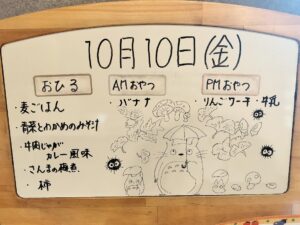 10月10日(金)
おひる
・麦ごはん
・青菜とわかめのみそ汁
・牛肉じゃが
カレー風味
・さんまの梅煮
・柿
AMおやつ
・バナナ
PMおやつ
・りんごケーキ・牛乳